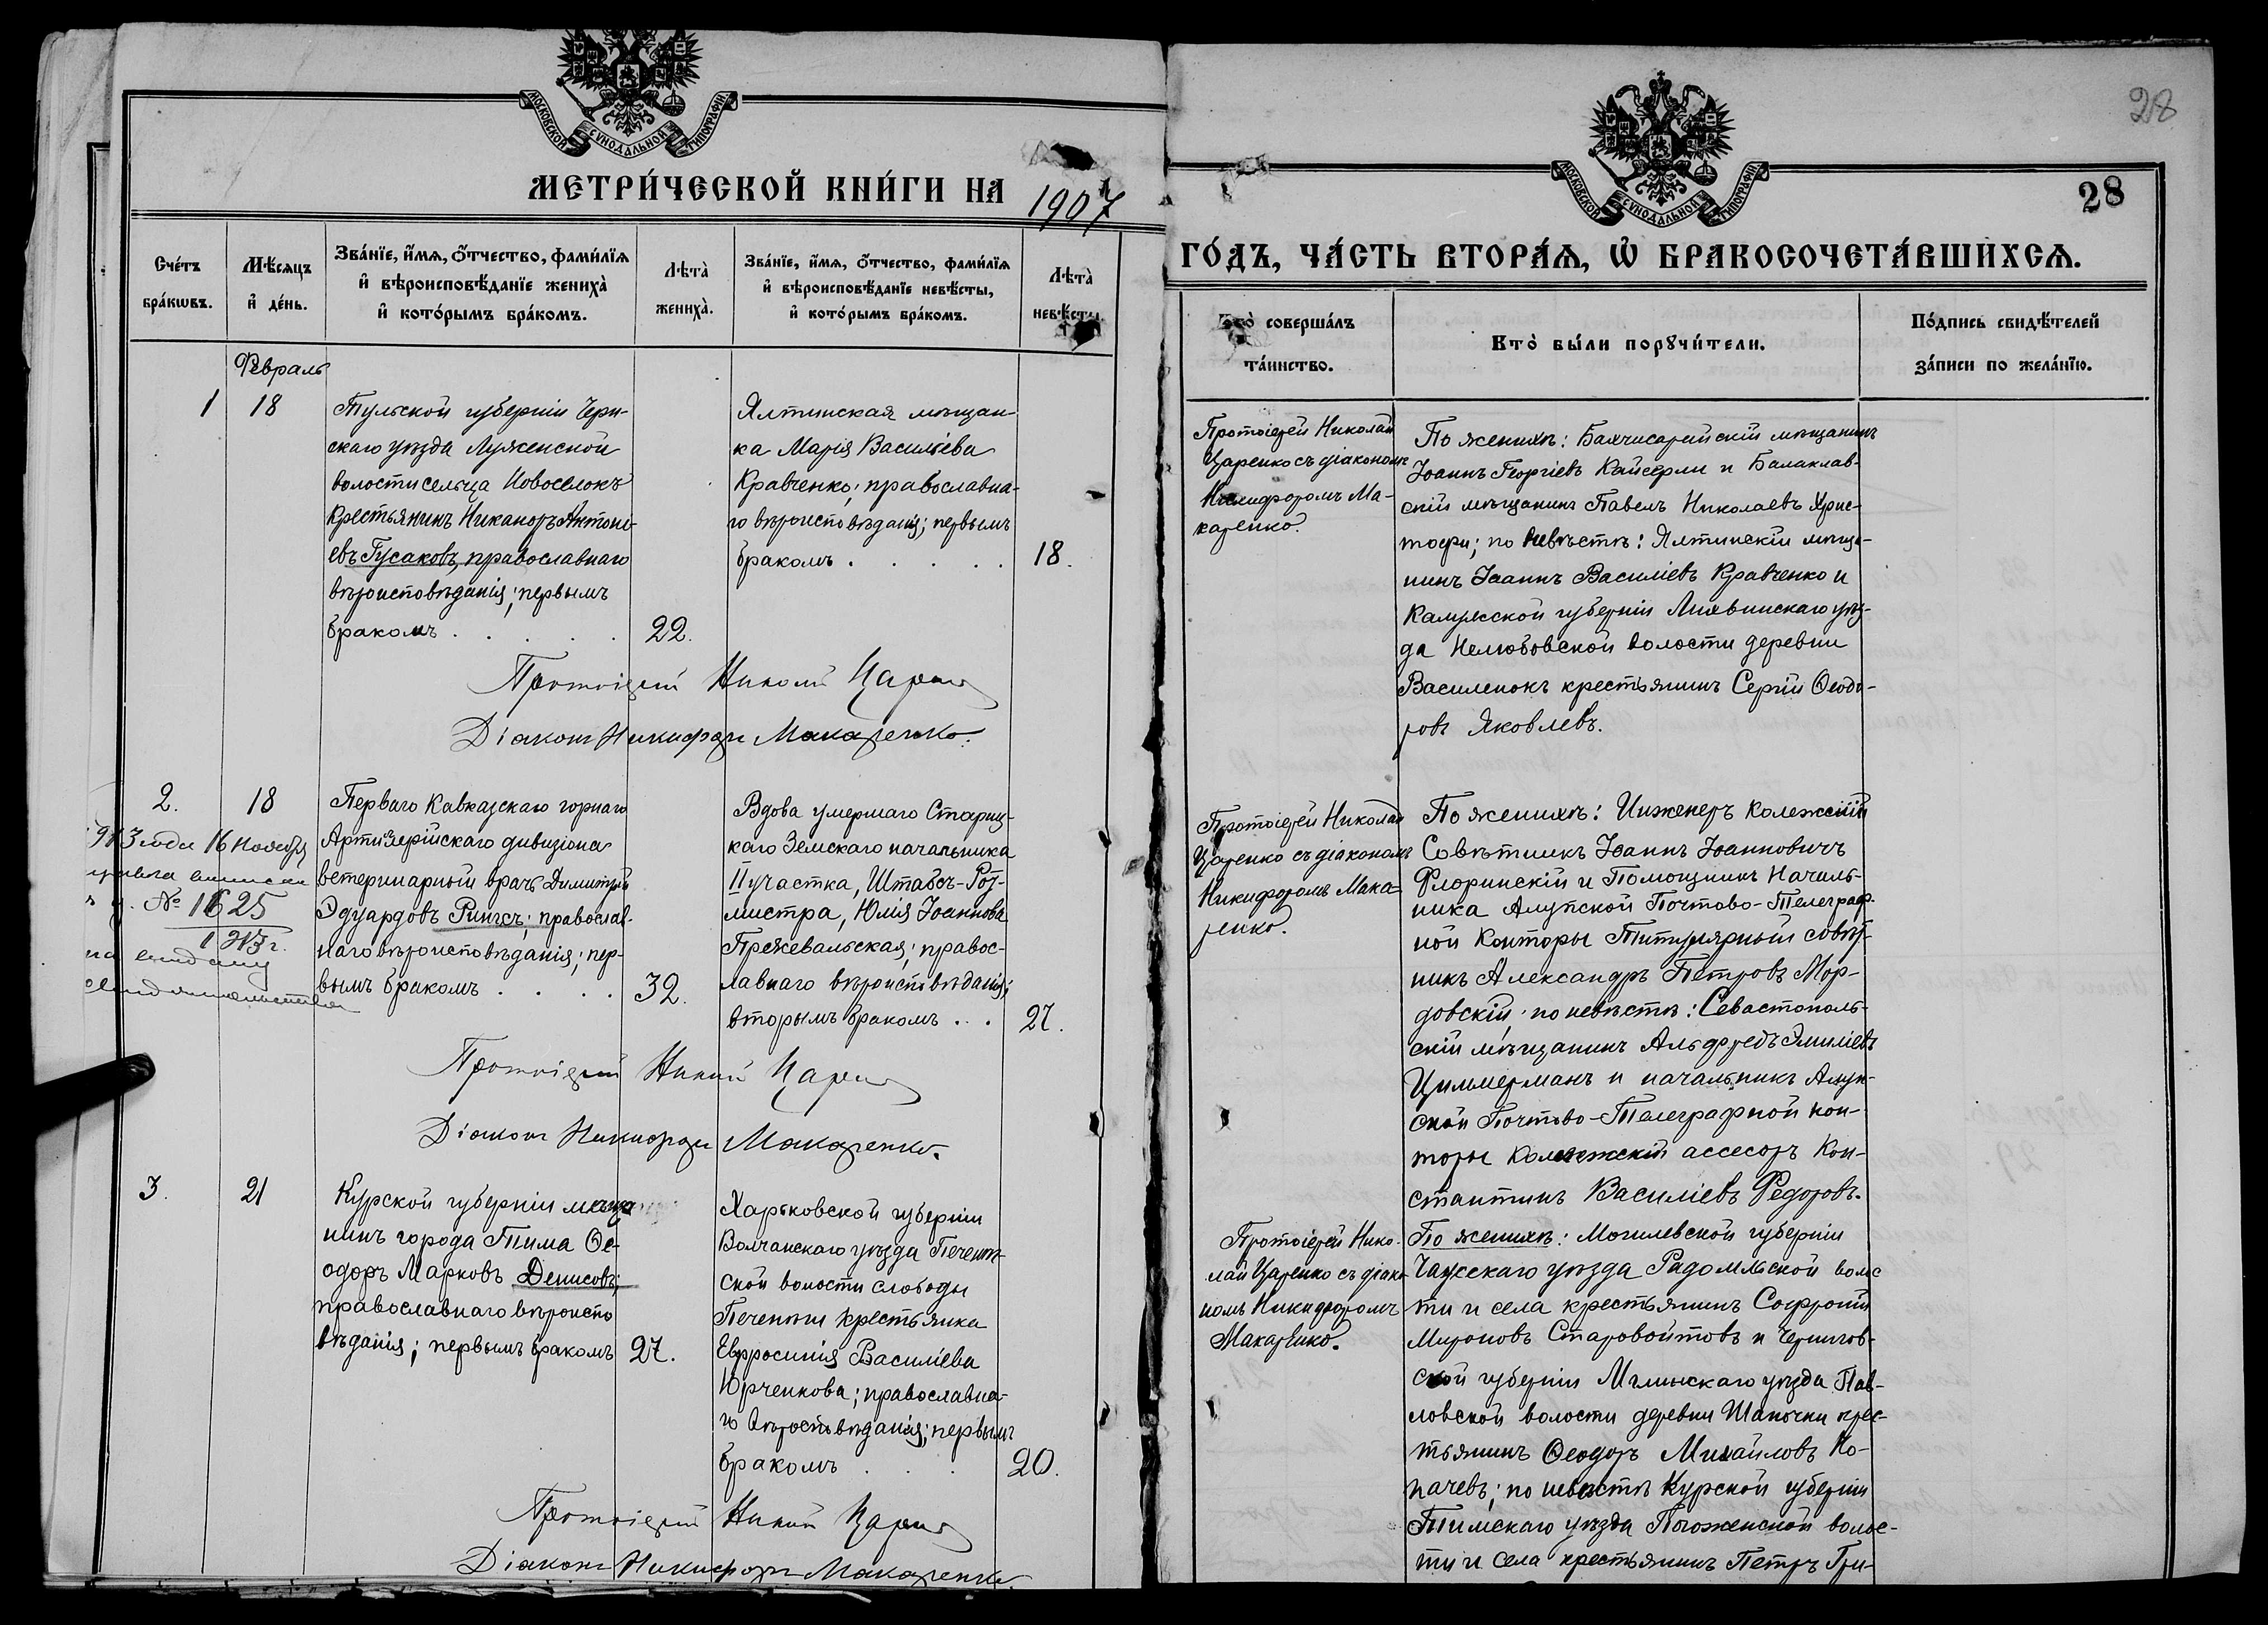 МОСКОВСКОЙ СѴНОДАЛЬНОЙ ТИПОГРАФІИ
МЕТРИ́ЧЕСКОЙ КНИ́ГИ НА 1907
Сче́тъ бра́кѡвъ.
Мѣ́сяцъ и҆ де́нь.
Зва́нїе, и҆́мѧ, ѻ҆́тчество, фами́лїѧ
и҆ вѣроисповѣ́данїе женихà
и҆ кото́рымъ бра́комъ.
Лѣтà женихà.
Зва́нїе, и҆́мѧ, ѻ҆́тчество, фами́лїѧ
и҆ вѣроисповѣ́данїе невѣ́сты,
и҆ кото́рымъ бра́комъ.
Лѣтà невѣ́сты.
Февраль
1
18
Тульской губерніи Черн-
скаго уѣзда Луженской
волости сельца Новоселокъ
крестьянинъ Никаноръ Антоні-
евъ Гусаковъ, православнаго
вѣроисповѣданія; первымъ
бракомъ . . . . .
22.
Ялтинская мѣщан-
ка Марія Васильева
Кравченко; православна-
го вѣроисповѣданія; первымъ
бракомъ . . . . .
18.
Протоіерей Николай Царенко
Діаконъ Никифоръ Макаренко.
2.
18
1913 года 16 Ноября
№ 1625
1913 г.
Перваго Кавказскаго горнаго
Артиллерійскаго дивизіона
ветеринарный врачъ Димитрій
Эдуардовъ Рингсъ; православ-
наго вѣроисповѣданія; пер-
вымъ бракомъ . . . .
32.
Вдова умершаго Стариц-
каго Земскаго начальника
II участка, Штабсъ-Рот-
мистра, Юлія Іоаннова
Пржевальская; правос-
лавнаго вѣроисповѣданія;
вторымъ бракомъ . . .
27.
Протоіерей Николай Царенко
Діаконъ Никифоръ Макаренко.
3.
21
Курской губерніи мѣща
нинъ города Тима Ѳе-
одоръ Марковъ Денисовъ;
православнаго вѣроиспо
вѣданія; первымъ бракомъ
27.
Харьковской губерніи
Волчанскаго уѣзда Печенѣж-
ской волости слободы
Печенѣги крестьянка
Евфросинія Василіева
Юрченкова; православна-
го вѣроисповѣданія; первымъ
бракомъ . . .
20.
Протоіерей Николай Царенко
Діаконъ Никифоръ Макаренко.
28
МОСКОВСКОЙ СѴНОДАЛЬНОЙ ТИПОГРАФІИ
28
ГО́ДЪ, ЧА́СТЬ ВТОРА́Ѧ, Ѡ҆ БРАКОСОЧЕТА́ВШИХСѦ.
Кто̀ соверша́лъ
та́инство.
Кто̀ бы́ли порꙋчи́тели.
По́дпись свидѣ́телей
за́писи по жела́нїю.
Протоіерей Николай
Царенко съ діакономъ
Никифоромъ Ма-
каренко.
По женихѣ: Бахчисарайскій мѣщанинъ
Іоаннъ Георгіевъ Кайсерли и Балаклав-
скій мѣщанинъ Павелъ Николаевъ Хрис-
тофи; по невѣстѣ: Ялтинскій мѣща-
нинъ Іоаннъ Василіевъ Кравченко и
Калужской губерніи Лихвинскаго уѣз-
да Нелюбовской волости деревни
Василенокъ крестьянинъ Сергій Ѳеодо-
ровъ Яковлевъ.
Протоіерей Николай
Царенко съ діакономъ
Никифоромъ Мака-
ренко.
По женихѣ: Инженеръ Колежскій
Совѣтникъ Іоаннъ Іоанновичъ
Флоринскій и Помощникъ Началь-
ника Алупской Почтово-Телеграф-
ной Конторы Титулярный совѣт-
никъ Александръ Петровъ Мор-
довскій; по невѣстѣ: Севастополь-
скій мѣщанинъ Альфредъ Эмиліевъ
Циммерманъ и начальникъ Алуп-
ской Почтово-Телеграфной кон-
торы Колежскій ассесоръ Кон-
стантинъ Василіевъ Федоровъ.
Протоіерей Нико-
лай Царенко съ діако-
номъ Никифоромъ
Макаренко.
По женихѣ: Могилевской губерніи
Чаусскаго уѣзда Радомльской волос
ти и села крестьянинъ Софроній
Мироновъ Старовойтовъ и Чернигов-
ской губерніи Мглинскаго уѣзда Пав-
ловской волости деревни Шапочки крес-
тьянинъ Ѳеодоръ Михайловъ Ко-
пачевъ; по невѣстѣ Курской губерніи
Тимскаго уѣзда Погоженской волос-
ти и села крестьянинъ Петръ Гри-